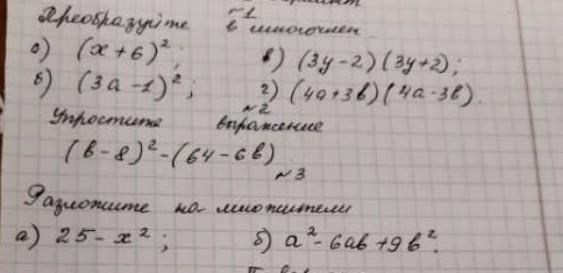 №1
Преобразуйте в многочлен
а) (x+6)²; в) (3y-2)(3y+2);
б) (3a-1)²; г) (4a+3b)(4a-3b).
№2
Упростите выражение
(b-8)²-(64-6b)
№3
Разложите на множители
а) 25-x²; б) a²-6ab+9b².